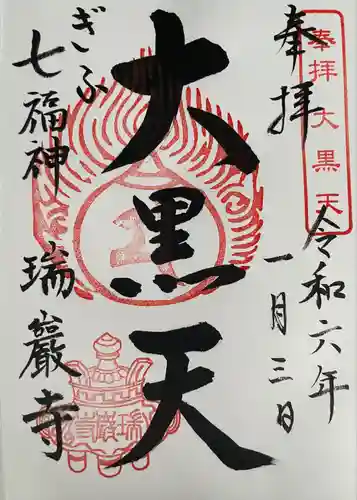 奉拝
奉拝大黒天
令和六年
一月三日
大黒天
ぎふ
七福神
瑞巖寺
瑞巖寺